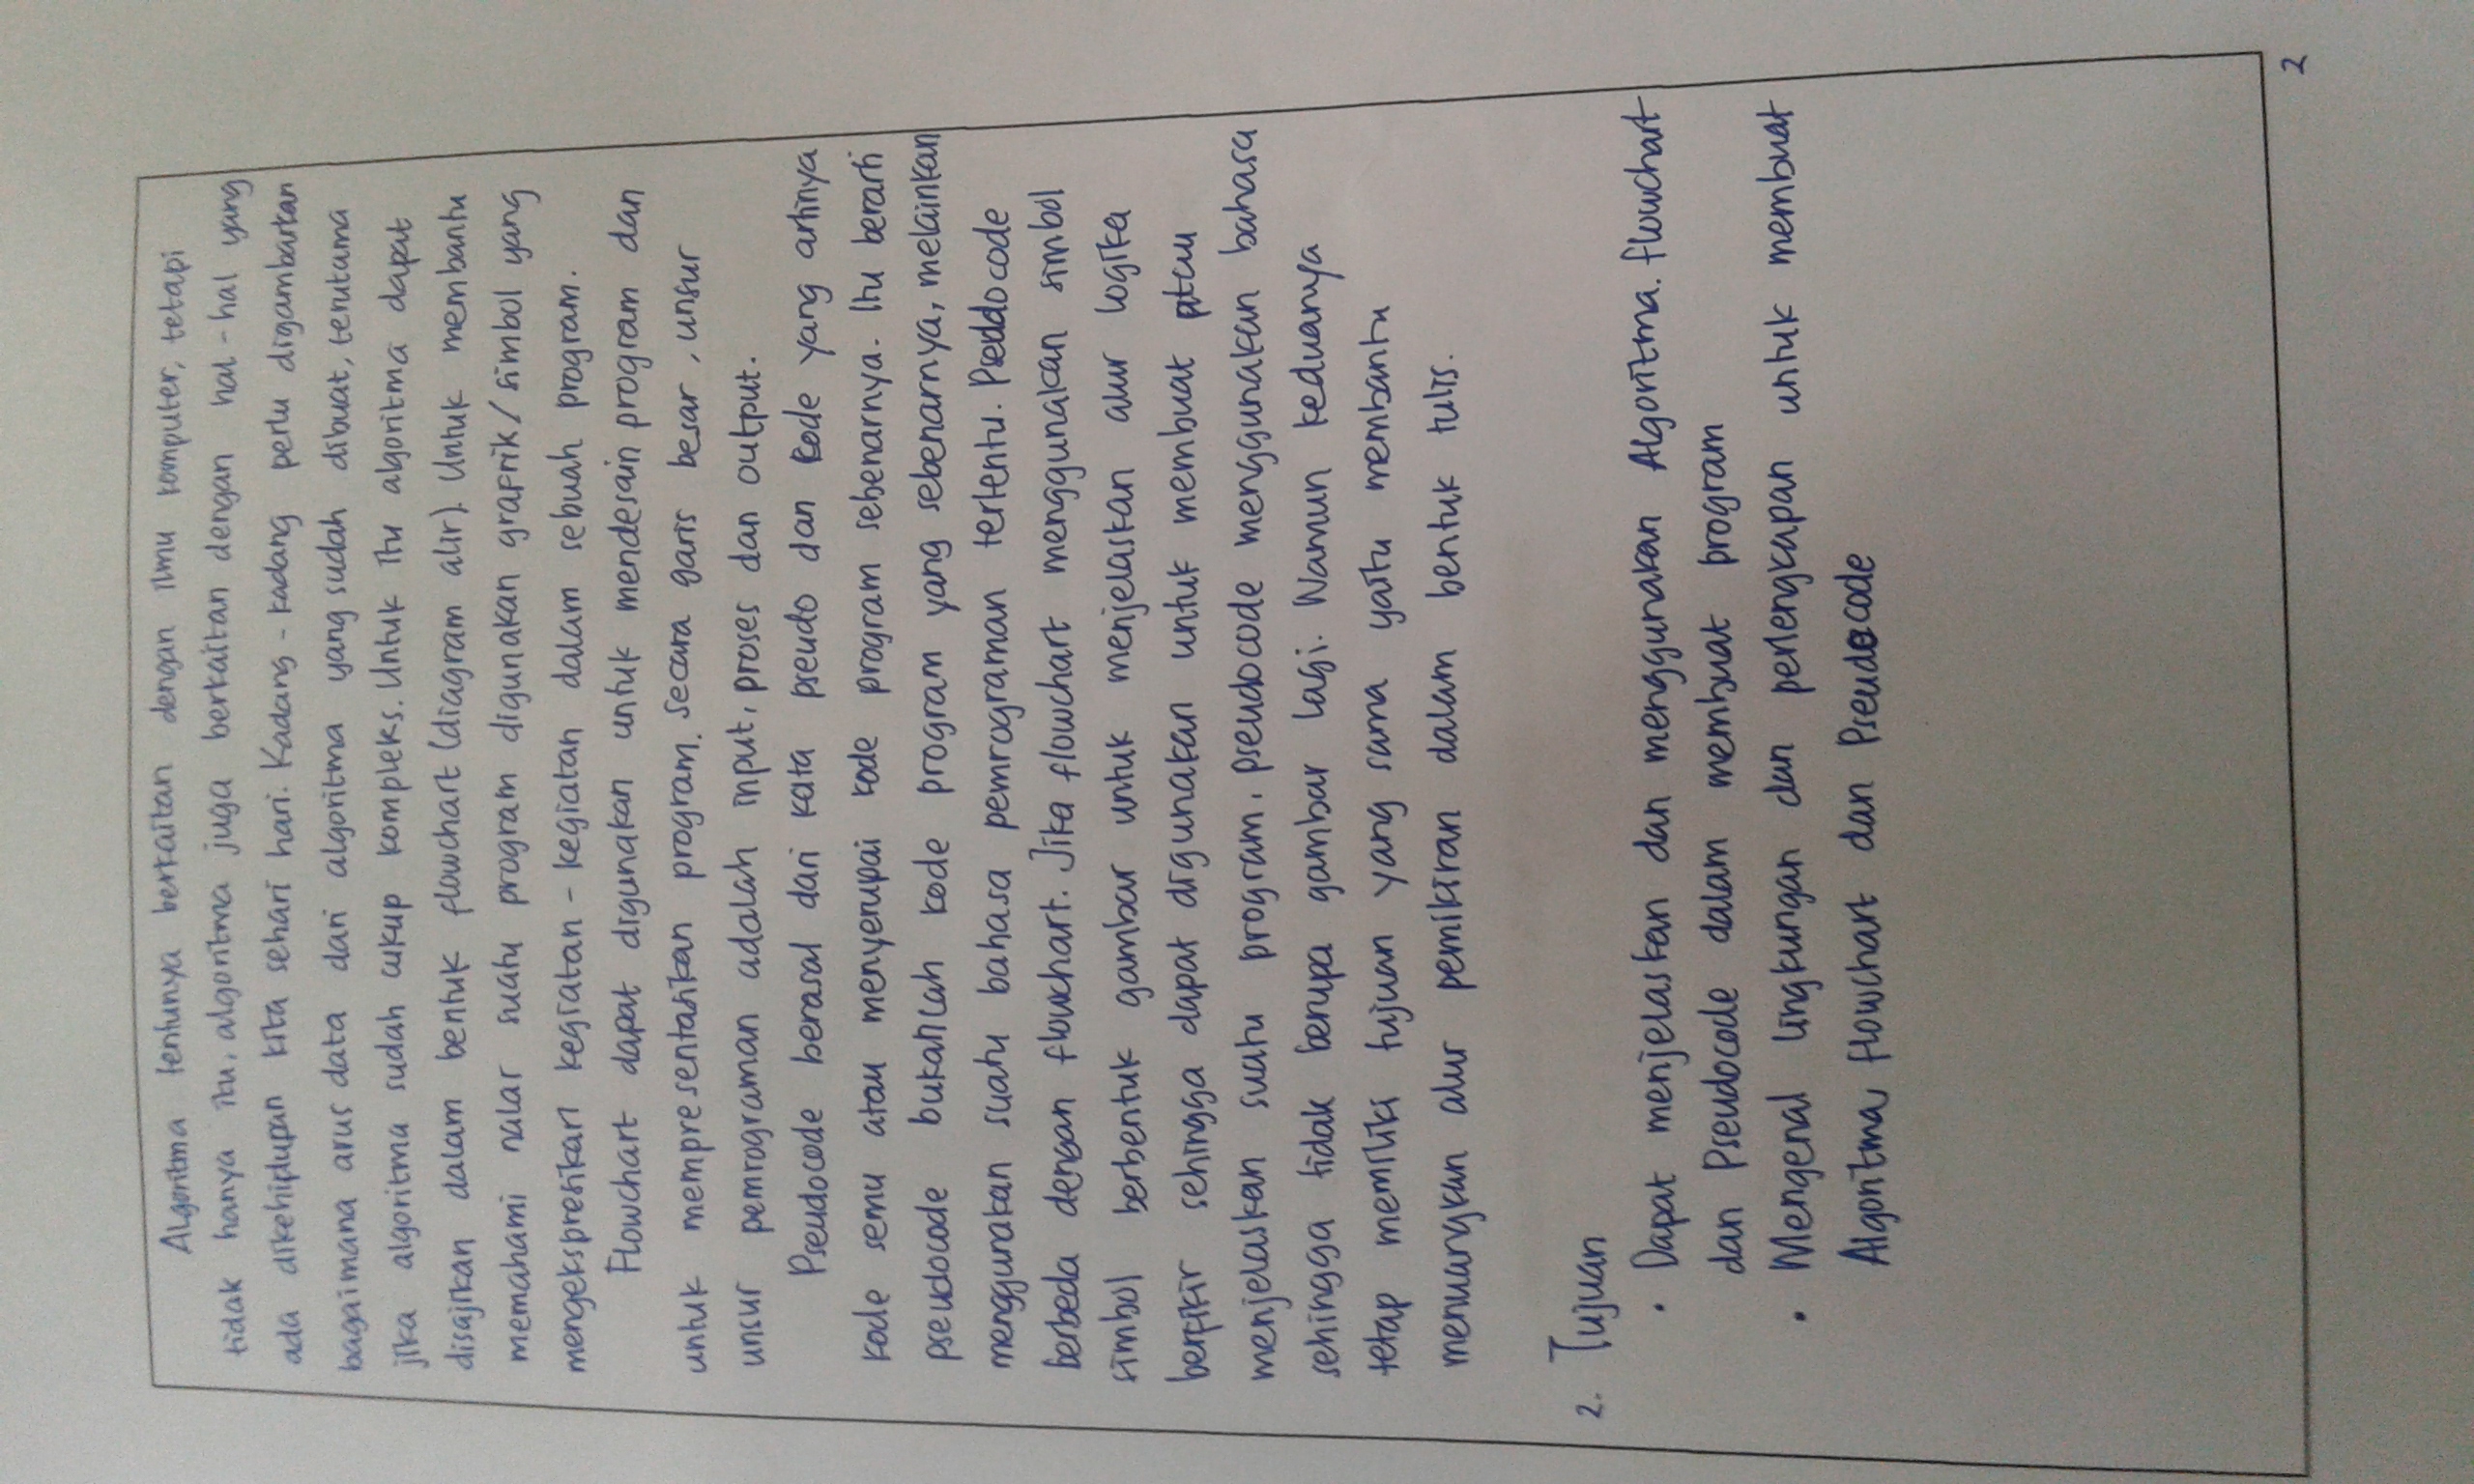 Algoritma tentunya berkaitan dengan ilmu komputer, tetapi
tidak hanya itu, algoritma juga berkaitan dengan hal-hal yang
ada dikehidupan kita sehari hari. Kadang-kadang perlu digambarkan
bagaimana arus data dari algoritma yang sudah dibuat, terutama
jika algoritma sudah cukup kompleks. Untuk itu algoritma dapat
disajikan dalam bentuk flowchart (diagram alir). Untuk membantu
memahami nalar suatu program digunakan grafrik/simbol yang
mengekspresikan kegiatan-kegiatan dalam sebuah program.
Flowchart dapat digunakan untuk mendesain program dan
untuk mempresentasikan program. Secara garis besar, unsur
unsur pemrograman adalah input, proses dan output.
Pseudocode berasal dari kata pseudo dan kode yang artinya
kode semu atau menyerupai kode program sebenarnya. Itu berarti
pseudocode bukanlah kode program yang sebenarnya, melainkan
menggunakan suatu bahasa pemrograman tertentu. Pseddocode
berbeda dengan flowchart. Jika flowchart menggunakan simbol
simbol berbentuk gambar untuk menjelaskan alur logika
berfikir sehingga dapat digunakan untuk membuat atau
menjelaskan suatu program, pseudocode menggunakan bahasa
sehingga tidak berupa gambar lagi. Namun keduanya
tetap memiliki tujuan yang sama yaitu membantu
menuangkan alur pemikiran dalam bentuk tulis.
2. Tujuan
• Dapat menjelaskan dan menggunakan Algoritma. flowchart
dan Pseudocode dalam membuat program
• Mengenal lingkungan dan perlengkapan untuk membuat
Algoritma, flowchart dan Pseudocode
2